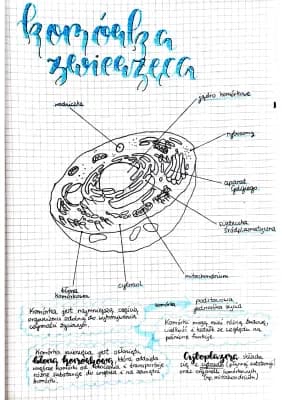 komórka
zwierzęca
wodniczka
jądro komórkowe
rybosomy
aparat
Golgiego
siateczka
śródplazmatyczna
mitochondrium
cytozol
błona
komórkowa
Komórka jest najmniejszą częścią
organizmu zdolną do wykonywania
czynności życiowych.
komórka
podstawowa
jednostka życia
Komórki mogą mieć różną budowę,
wielkość i kształt ze względu na
pełnione funkcje.
Komórka zwierzęca jest otoczona
błoną komórkową, która oddziela
wnętrze komórki od otoczenia i transportuje
różne substancje do wnętrza i na zewnątrz
komórki.
Cytoplazma składa
się z cytozolu (płynnej substancji)
oraz organelli komórkowych
(np. mitochondriów)